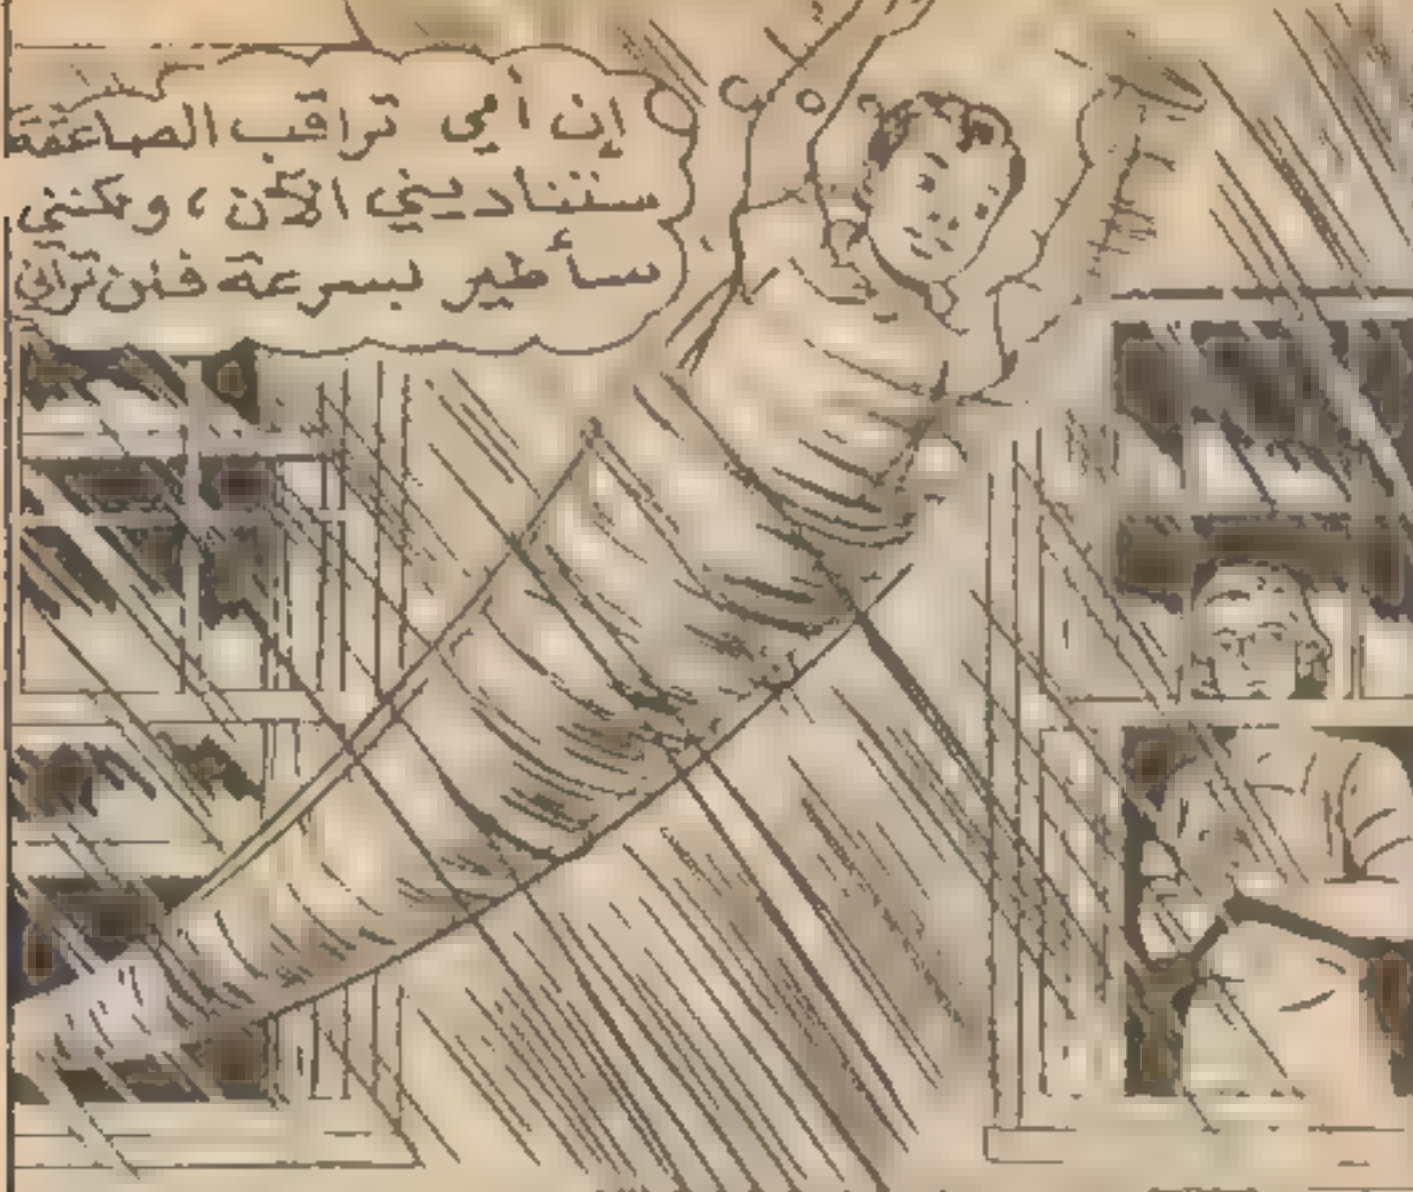 إن أمي تراقب الصاعقة
ستناديني الآن ، ولكنني
سأطير بسرعة فلن تراني